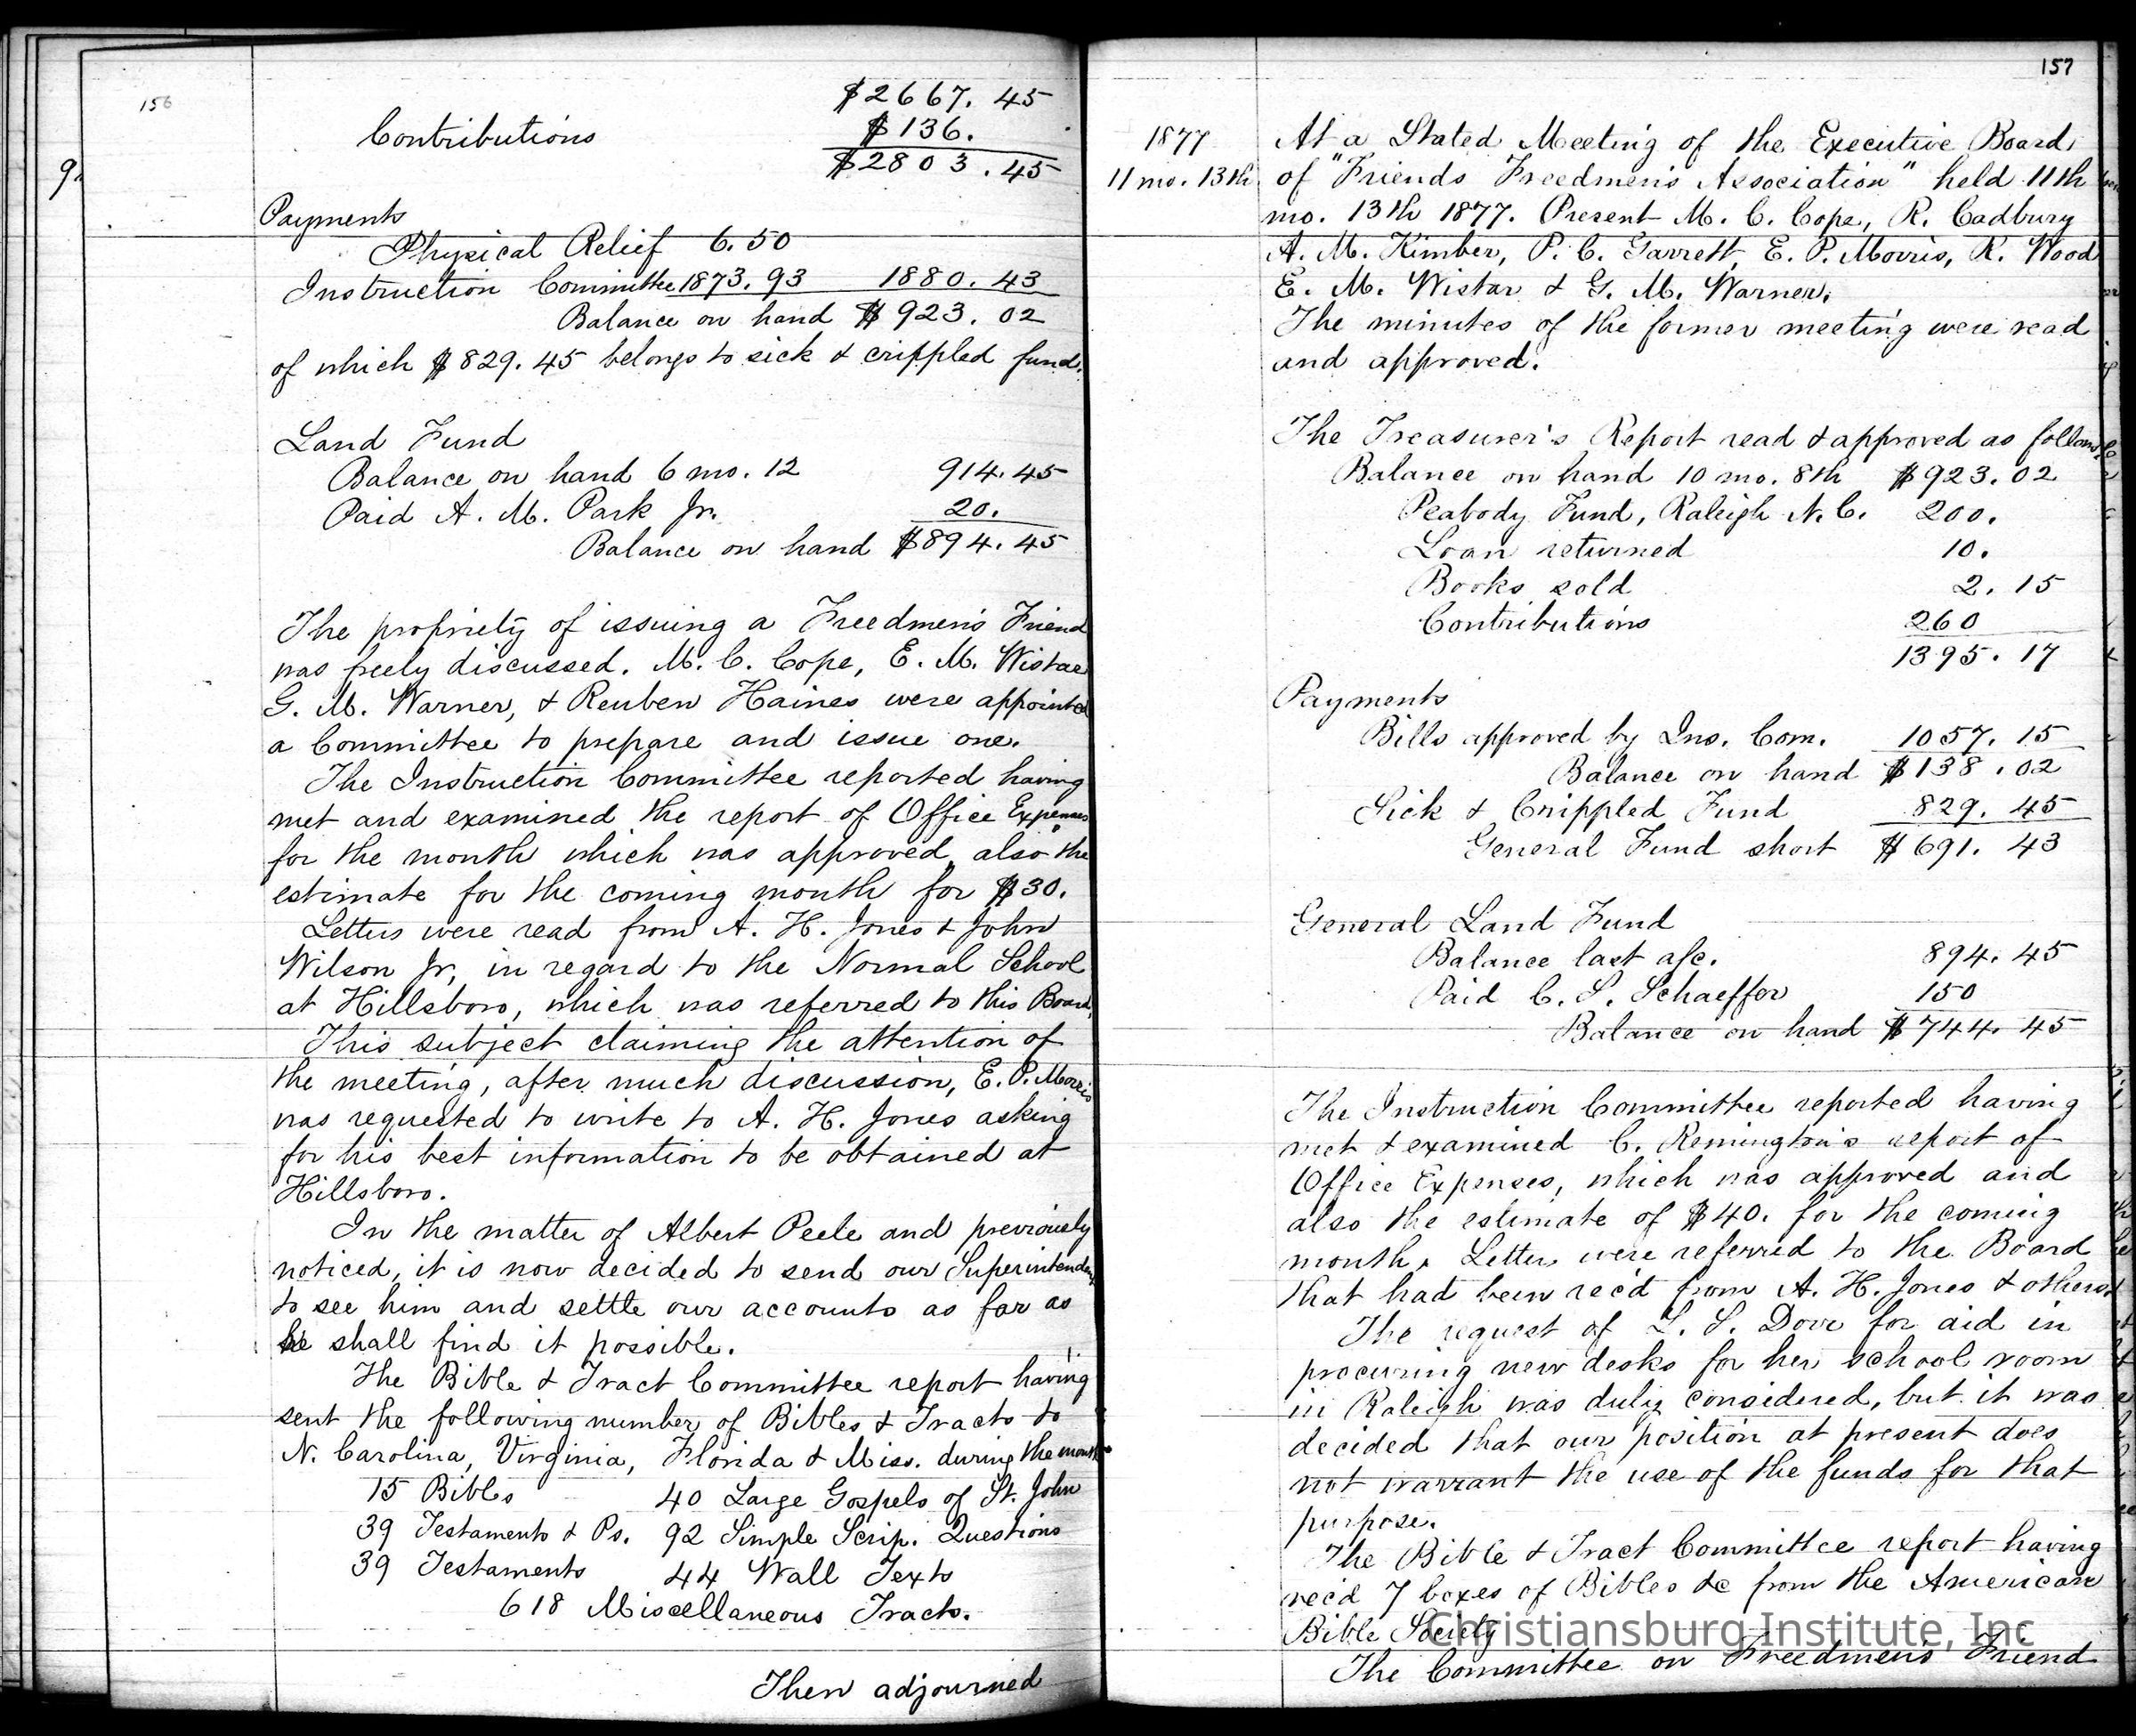 156
$2667. 45
Contributions $136.
$2803. 45
9.
Payments
Physical Relief 6. 50
Instruction Committee 1873. 93 1880. 43
Balance on hand $923. 02
of which $829. 45 belongs to sick & crippled fund.
Land Fund
Balance on hand 6 mo. 12 914. 45
Paid A. M. Park Jr. 20.
Balance on hand $894. 45
The propriety of issuing a Freedmen's Friend
was freely discussed. M. C. Cope, E. M. Wistar
G. M. Warner, & Reuben Haines were appointed
a Committee to prepare and issue one.
The Instruction Committee reported having
met and examined the report of Office Expenses
for the month which was approved, also the
estimate for the coming month for $30.
Letters were read from A. H. Jones & John
Wilson Jr, in regard to the Normal School
at Hillsboro, which was referred to this Board.
This subject claiming the attention of
the meeting, after much discussion, E. P. Morris
was requested to write to A. H. Jones asking
for his best information to be obtained at
Hillsboro.
In the matter of Albert Peele and previously
noticed, it is now decided to send our Superintendent
to see him and settle our accounts as far as
he shall find it possible.
The Bible & Tract Committee report having
sent the following number of Bibles & Tracts to
N. Carolina, Virginia, Florida & Miss. during the month
15 Bibles 40 Large Gospels of St. John
39 Testaments & Ps. 92 Simple Scrip. Questions
39 Testaments 44 Wall Texts
618 Miscellaneous Tracts.
Then adjourned
157
1877 At a Stated Meeting of the Executive Board
11 mo. 13th of "Friends Freedmen's Association" held 11th
mo. 13th 1877. Present M. C. Cope, R. Cadbury
A. M. Kimber, P. C. Garrett, E. P. Morris, R. Wood
E. M. Wistar & G. M. Warner.
The minutes of the former meeting were read
and approved.
The Treasurer's Report read & approved as follows
Balance on hand 10 mo. 8th $923. 02
Peabody Fund, Raleigh N. C. 200.
Loan returned 10.
Books sold 2. 15
Contributions 260
1395. 17
Payments
Bills approved by Ins. Com. 1057. 15
Balance on hand $138. 02
Sick & Crippled Fund 829. 45
General Fund short $691. 43
General Land Fund
Balance last a/c. 894. 45
Paid C. S. Schaeffer 150
Balance on hand $744. 45
The Instruction Committee reported having
met & examined C. Remington's report of
Office Expenses, which was approved and
also the estimate of $40. for the coming
month. Letters were referred to the Board
that had been rec'd from A. H. Jones & others.
The request of L. S. Dove for aid in
procuring new desks for her school room
in Raleigh was duly considered, but it was
decided that our position at present does
not warrant the use of the funds for that
purpose.
The Bible & Tract Committee report having
rec'd 7 boxes of Bibles &c from the American
Bible Society
Christiansburg Institute, Inc
The Committee on Freedmen's Friend